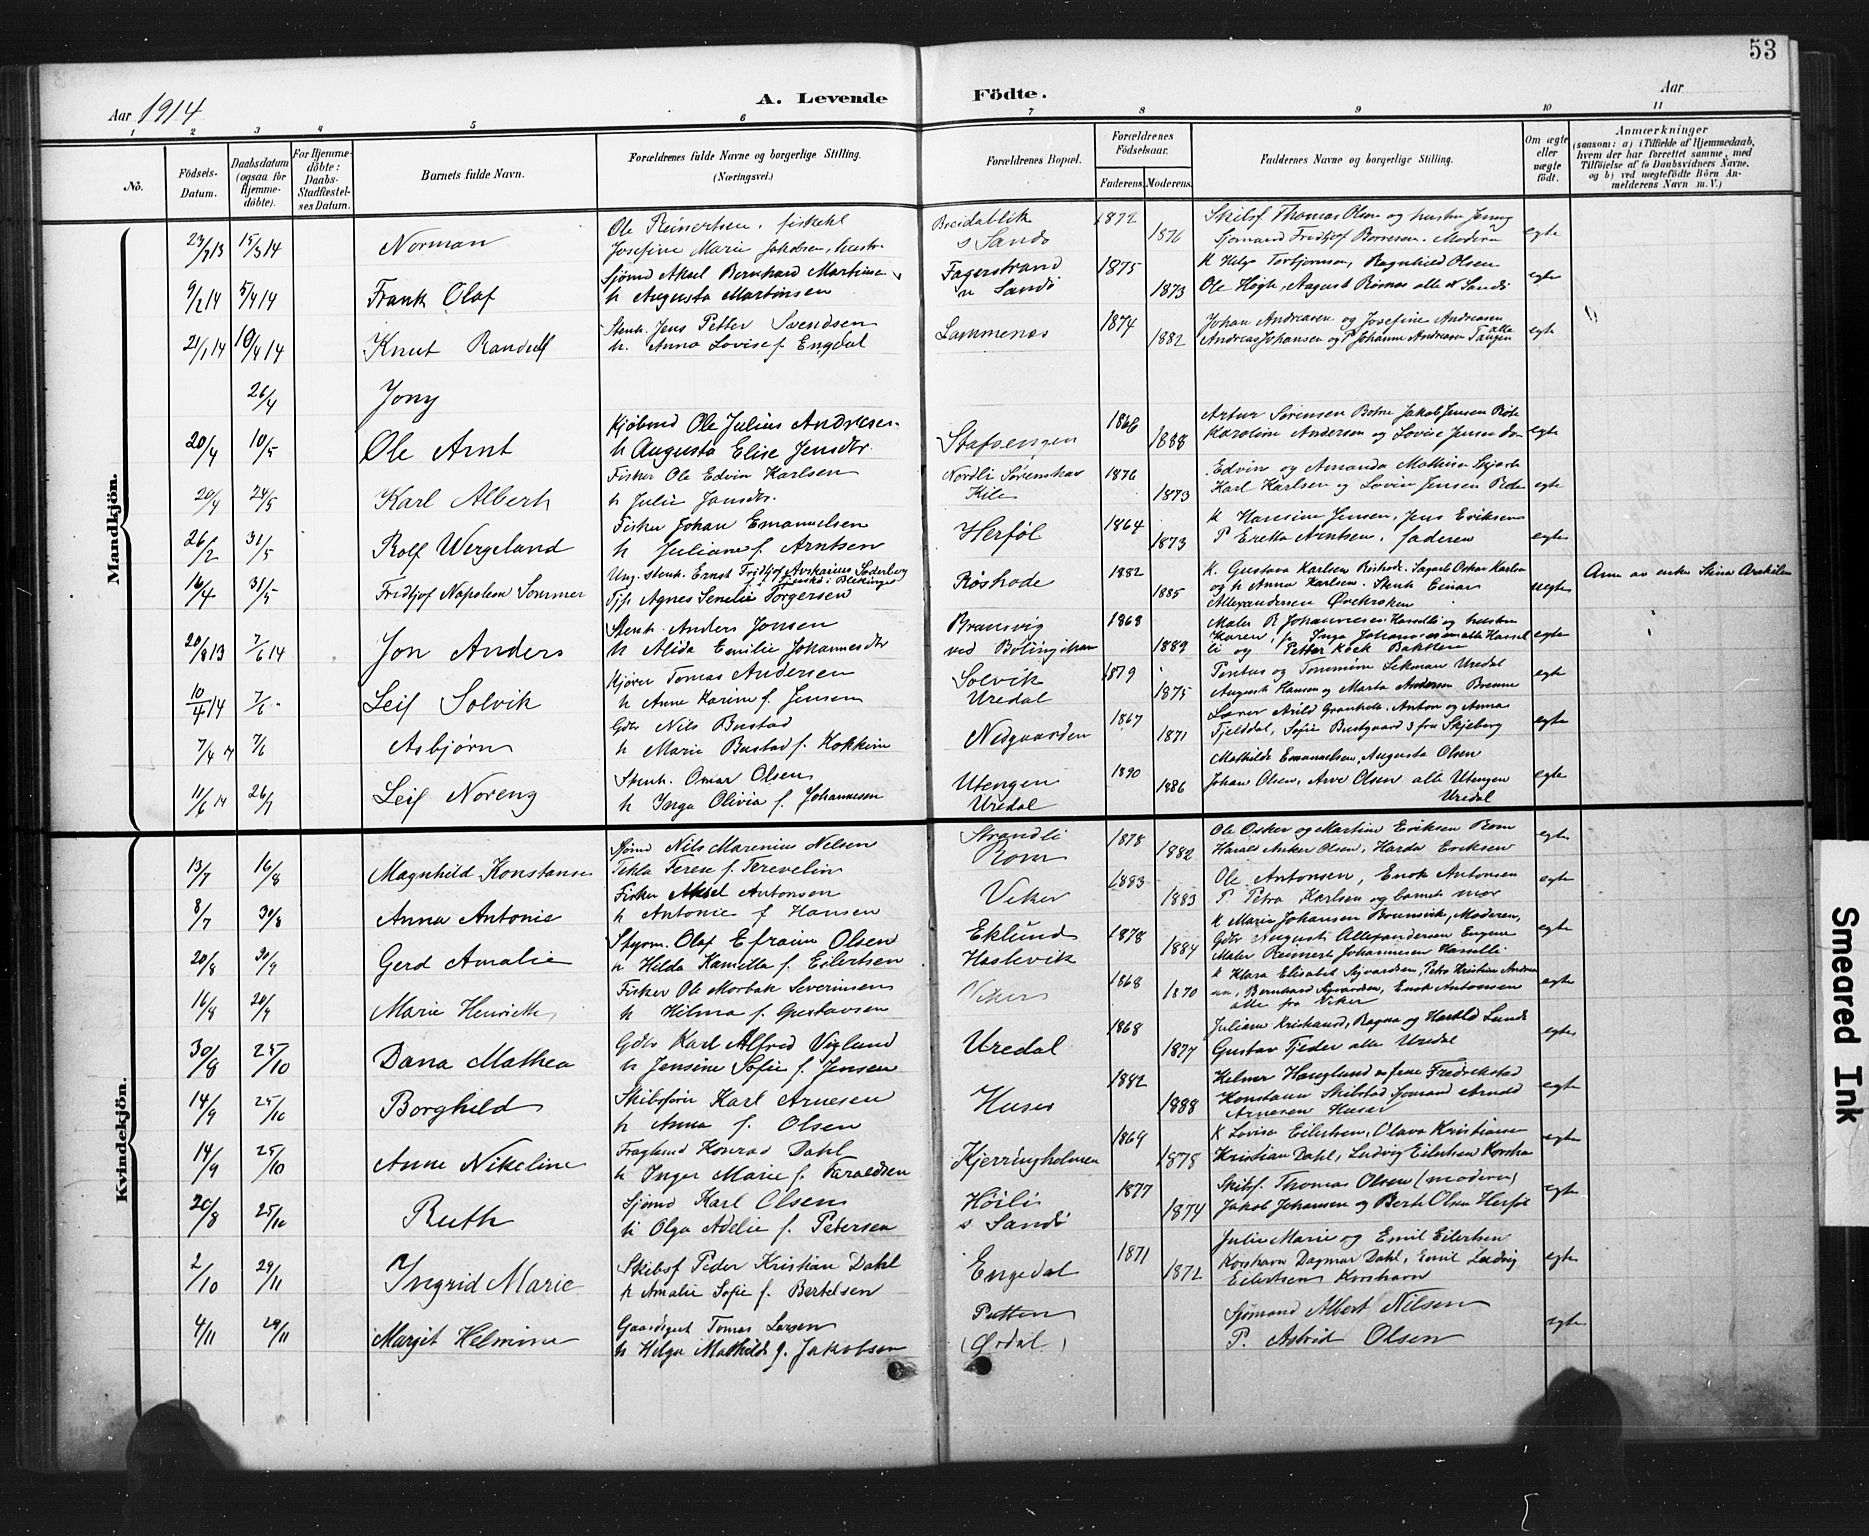 53
Aar 1914
A. Levende Födte.
Aar
1 2 3 4 5 6 7 8 9 10 11
No.
Födsels-
Datum.
Daabsdatum
(ogsaa for
Hjemme-
döbte).
For Hjemme-
döbte:
Daabs-
Stadfæstel-
ses Datum.
Barnets fulde Navn.
Forældrenes fulde Navne og borgerlige Stilling.
(Næringsvei.)
Forældrenes Bopæl.
Forældrenes
Födselsaar.
Faderens. Moderens.
Faddernes Navne og borgerlige Stilling.
Om ægte
eller
uægte
födt.
Anmærkninger
(saasom: a) i Tilfælde af Hjemmedaab,
hvem der har forrettet samme, med
Tilföielse af to Daabsvidners Navne,
og b) ved uægtefödte Börn An-
melderens Navn m. V.)
Mandkjön.
15/3 14 Norman
Ole Reinertsen
Josefine Marie Jakobsen, hustru
Breidablik
s Sandö
1872 1876
Skibsf Thomas Olsen og hustru
Sjømand Fridtjof Borresen. Modern
egte
9/2 14 5/4 14 Frank Olaf
Sjömd Aksel Bernhard Martinsen
h Augusta Martinsen
Fagerstrand
n Sandö
1875 1873
K Helga Torbjørnsen, Ragnhild Olsen
Ole Högh, August Rösnæs alle N Sandö
egte
21/1 14 19/4 14 Knut Randulf
Stenh. Jens Petter Svendsen
h. Anna Lovise f. Engdal
Lammenæs
1874 1882
Johan Andreasen og Josefine Andreasen
Andreas Johansen og P Johanne Andreasen alle Tangen
egte
26/4 Jony
20/4 10/5 Ole Arnt
Kjöbmd Ole Julius Andresen
h Augusta Elise Jensdtr.
Stafsengen
1866 1888
Artur Sørensen Botne Jakob Jensen Röd
Karoline Andersen og Lovise Jensen
egte
20/4 24/5 Karl Albert
Fisker Ole Edvin Karlsen
h Julie Jansdtr.
Kile
1876 1873
Edvin og Amanda Mathisen
Karl Karlsen og Lovise Jensen
egte
26/2 31/5 Rolf Wergeland
Fisker Johan Emanuelsen
h Juliane f. Arntsen
Herföl
1864 1873
K Hansine Jensen, Jens Eriksen
P Eretta Arntsen, faderen
egte
16/4 31/5 Fridtjof Napoleon Sommer
Ung. stenh. Ernst Fridtjof Avskarius Söderberg
Tjp Agnes Senelie Torgersen
Röshode
1882 1885
K. Gustava Karlsen Röshode. Oskar Karlsen
og h Anna Karlsen. Stenh Einar
Allexandersen Övekroken
uegte
20/8 13 7/6 14 Jon Anders
Stenh. Anders Jonsen
h Alida Emilie Johannesdtr
Bransvig
1868 1889
Maler R Johannesen Hasseli og hustru
Karen, Inga Johannesen alle Hassel
li og Petter Kock Bakken
egte
10/4 14 7/6 Leif Solvik
Kjörer Tomas Andersen
h Anne Karine f. Jensen
Solvik
Uredal
1879 1875
Pontus og Tommine Lekman Uredal
August Hansen og Marta Andersen Bremne
egte
7/4 14 7/6 Asbjørn
Gdbr Nils Bustad
h Marie Bustad f. Hokkim
Nedgaarden
1867 1871
Lærer Arild Anton og Anna
Tjelddal, Sofie Bustgaard 3 fra Skjeberg
egte
11/6 14 26/7 Leif Noreng
Stenh. Omar Olsen
h Inga Olivia f. Johannesen
Utengen
Uredal
1890 1886
Mathilde Emanuelsen, Augusta Olsen
Johan Olsen, Arve Olsen alle Utengen
Uredal
egte
Kvindekjön.
13/7 16/8 Magnhild Konstanse
Sjömd Nils Marenius Nelsen
Tekla Terese f. Terevelin
Strandli
Rom
1878 1882
Ole Oskar og Martine Eriksen Rom
Harald Anker Olsen, Harda Eriksen
egte
8/7 30/8 Anna Antonie
Fisker Aksel Antonsen
h Antonie f Hansen
Viker
1883 1883
Ole Antonsen, Enok Antonsen
P Petra Karlsen og barnets mor
egte
20/8 20/9 Gerd Amalie
Styrm. Olaf Efraim Olsen
h Hilda Kamilla f. Eilertsen
Eklund
Haslevik
1878 1884
K Marie Johansen Brunsvik, Moderen,
Gdbr August Allexandersen
Maler Reinert Johannesen Hasselli
egte
16/8 20/9 Marie Henriette
Fisker Ole Morbak Severinsen
h Hilma f. Gustavsen
Viker
1868 1870
K Klara Elisabet Sigvardsen, Petra Kristine Andre
sen, Bernhard Sigvardsen, Enok Antonsen
alle fra Viker
egte
30/8 25/10 Dana Mathea
Gdbr Karl Alfred Viglund
h Jensine Sofie f. Jensen
Uredal
1868 1877
Juliane Kristiansd, Ragna og Harald Lunde
Gustav Fjeder alle Uredal
egte
14/9 25/10 Borghild
Skibsförer Karl Arnesen
h Anna f. Olsen
Huser
1882 1888
Helmer Hauglund og frue Fredrikstad
Konstanse Skibstad Sjömand Arnold
Arnesen Huser
egte
14/9 25/10 Anne Nikoline
Konrad Dahl
h Inger Marie f. Haraldsen
Kjerringholmen
1869 1878
K Lovise Eilertsen, Olava Kristiansen
Kristian Dahl, Ludvig Eilertsen Korshavn
egte
20/8 25/10 Ruth
Sjömd Karl Olsen
h Olga Adelie f. Petersen
Höili
s Sandö
1877 1874
Skibsf. Thomas Olsen (moderen)
Jakob Johansen og Berte Olsen Herföl
egte
2/10 29/11 Ingrid Marie
Skibsf Peder Kristian Dahl
h Amalie Sofie f. Bertelsen
Engedal
1871 1872
Julie Marie og Emil Eilertsen
Korshavn Dagmar Dahl, Emil Ludvig
Eilertsen Korshavn
egte
4/11 29/11 Margit Helmine
Gaardsgut Tomas Larsen
h Helga Mathilde f. Jakobsen
Putten
(Ørdal)
Sjömand Albert Nilsen
P. Astrid Olsen
egte
Smeared Ink